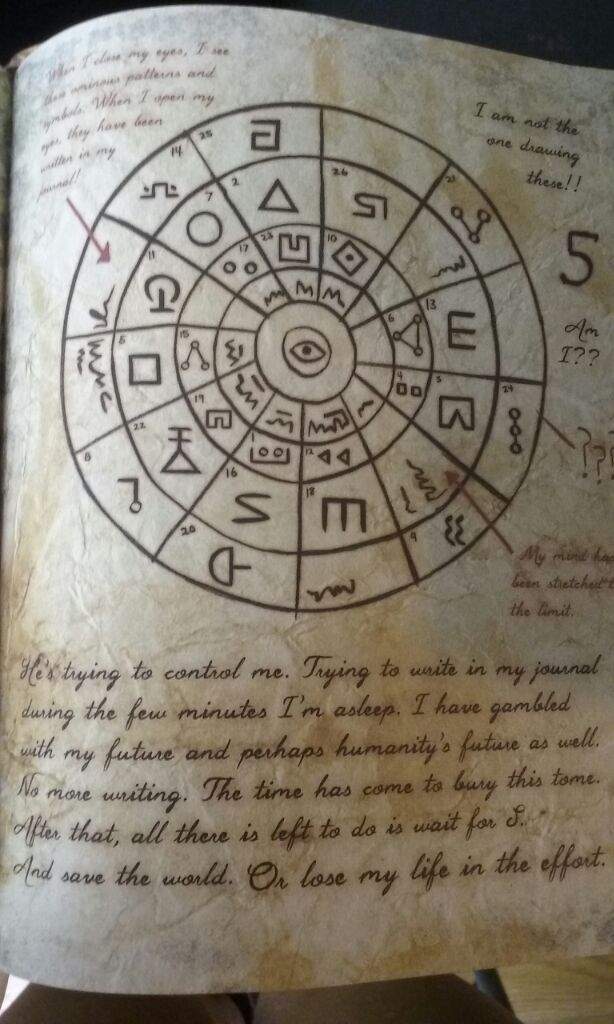 When I close my eyes, I see
these ominous patterns and
symbols. When I open my
eyes, they have been
written in my
journal!
I am not the
one drawing
these!!
5
Am
I??
???
25
14
2
26
21
7
23
10
17
11
13
6
15
5
4
3
24
19
22
12
8
16
18
9
20
My mind has
been stretched
the limit.
He's trying to control me. Trying to write in my journal
during the few minutes I'm asleep. I have gambled
with my future and perhaps humanity's future as well.
No more writing. The time has come to bury this tome.
After that, all there is left to do is wait for S.
And save the world. Or lose my life in the effort.